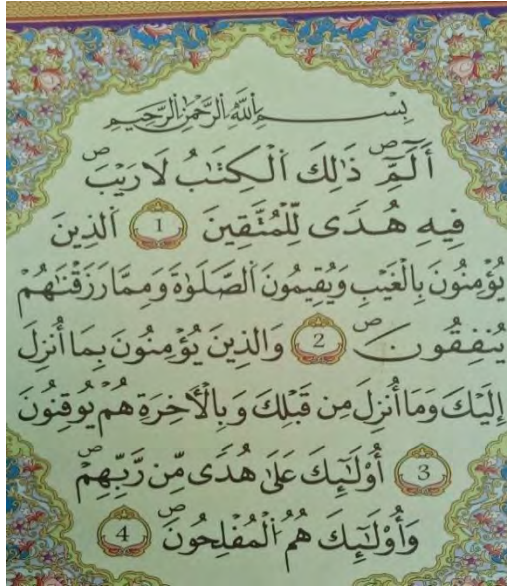 بِسْمِ اللَّهِ الرَّحْمَٰنِ الرَّحِيمِ
أَلَٓمِّٓۖ ذَٰلِكَ اَ۬لْكِتَٰبُ لَا رَيْبَۖ
فِيهِ هُدٗى لِّلْمُتَّقِينَ 1 اَ۬لذِينَ
يُؤْمِنُونَ بِالْغَيْبِ وَيُقِيمُونَ اَ۬لصَّلَوٰةَ وَمِمَّا رَزَقْنَٰهُمْ
يُنفِقُونَۖ 2 وَالذِينَ يُؤْمِنُونَ بِمَا أُنزِلَ
إِلَيْكَ وَمَا أُنزِلَ مِن قَبْلِكَ وَبِالْأَخِرَةِ هُمْ يُوقِنُونَ
3 أُوْلَٰٓئِكَ عَلَىٰ هُدٗى مِّن رَّبِّهِمْۖ
وَأُوْلَٰٓئِكَ هُمُ اُ۬لْمُفْلِحُونَۖ 4